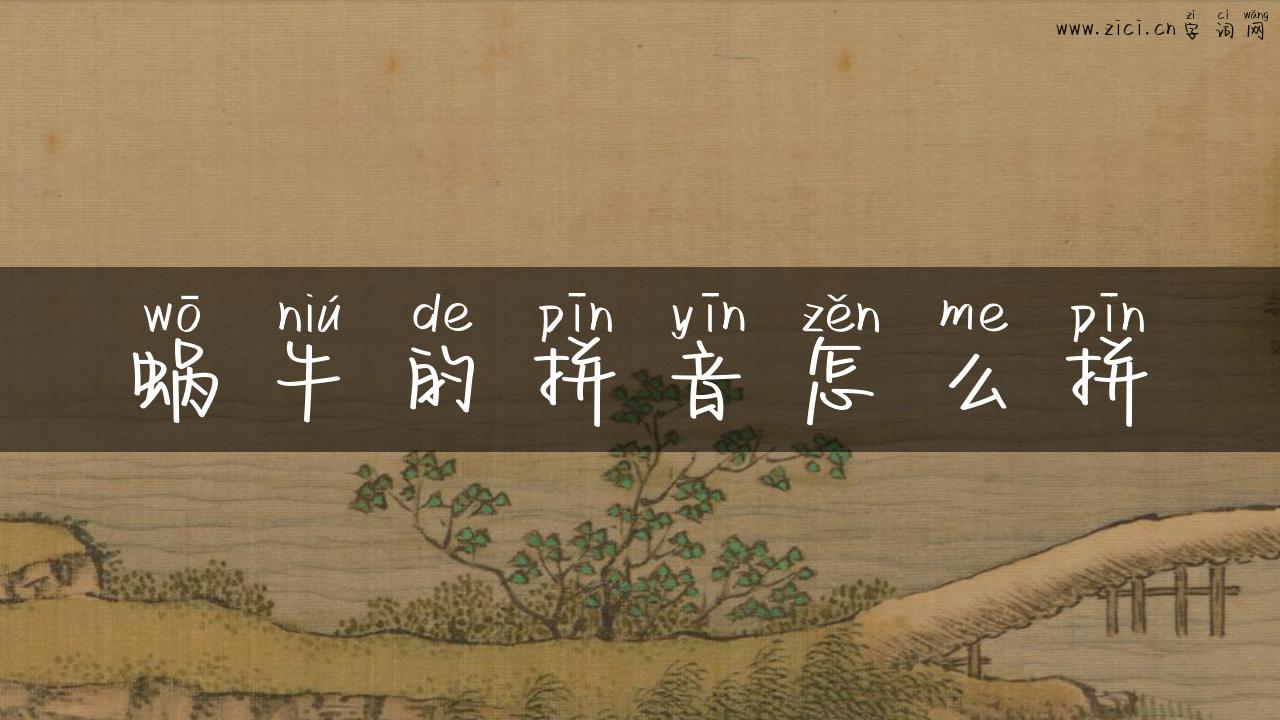 zì cí wǎng
www.zici.cn 字词网
wō niú de pīn yīn zěn me pīn
蜗牛的拼音怎么拼